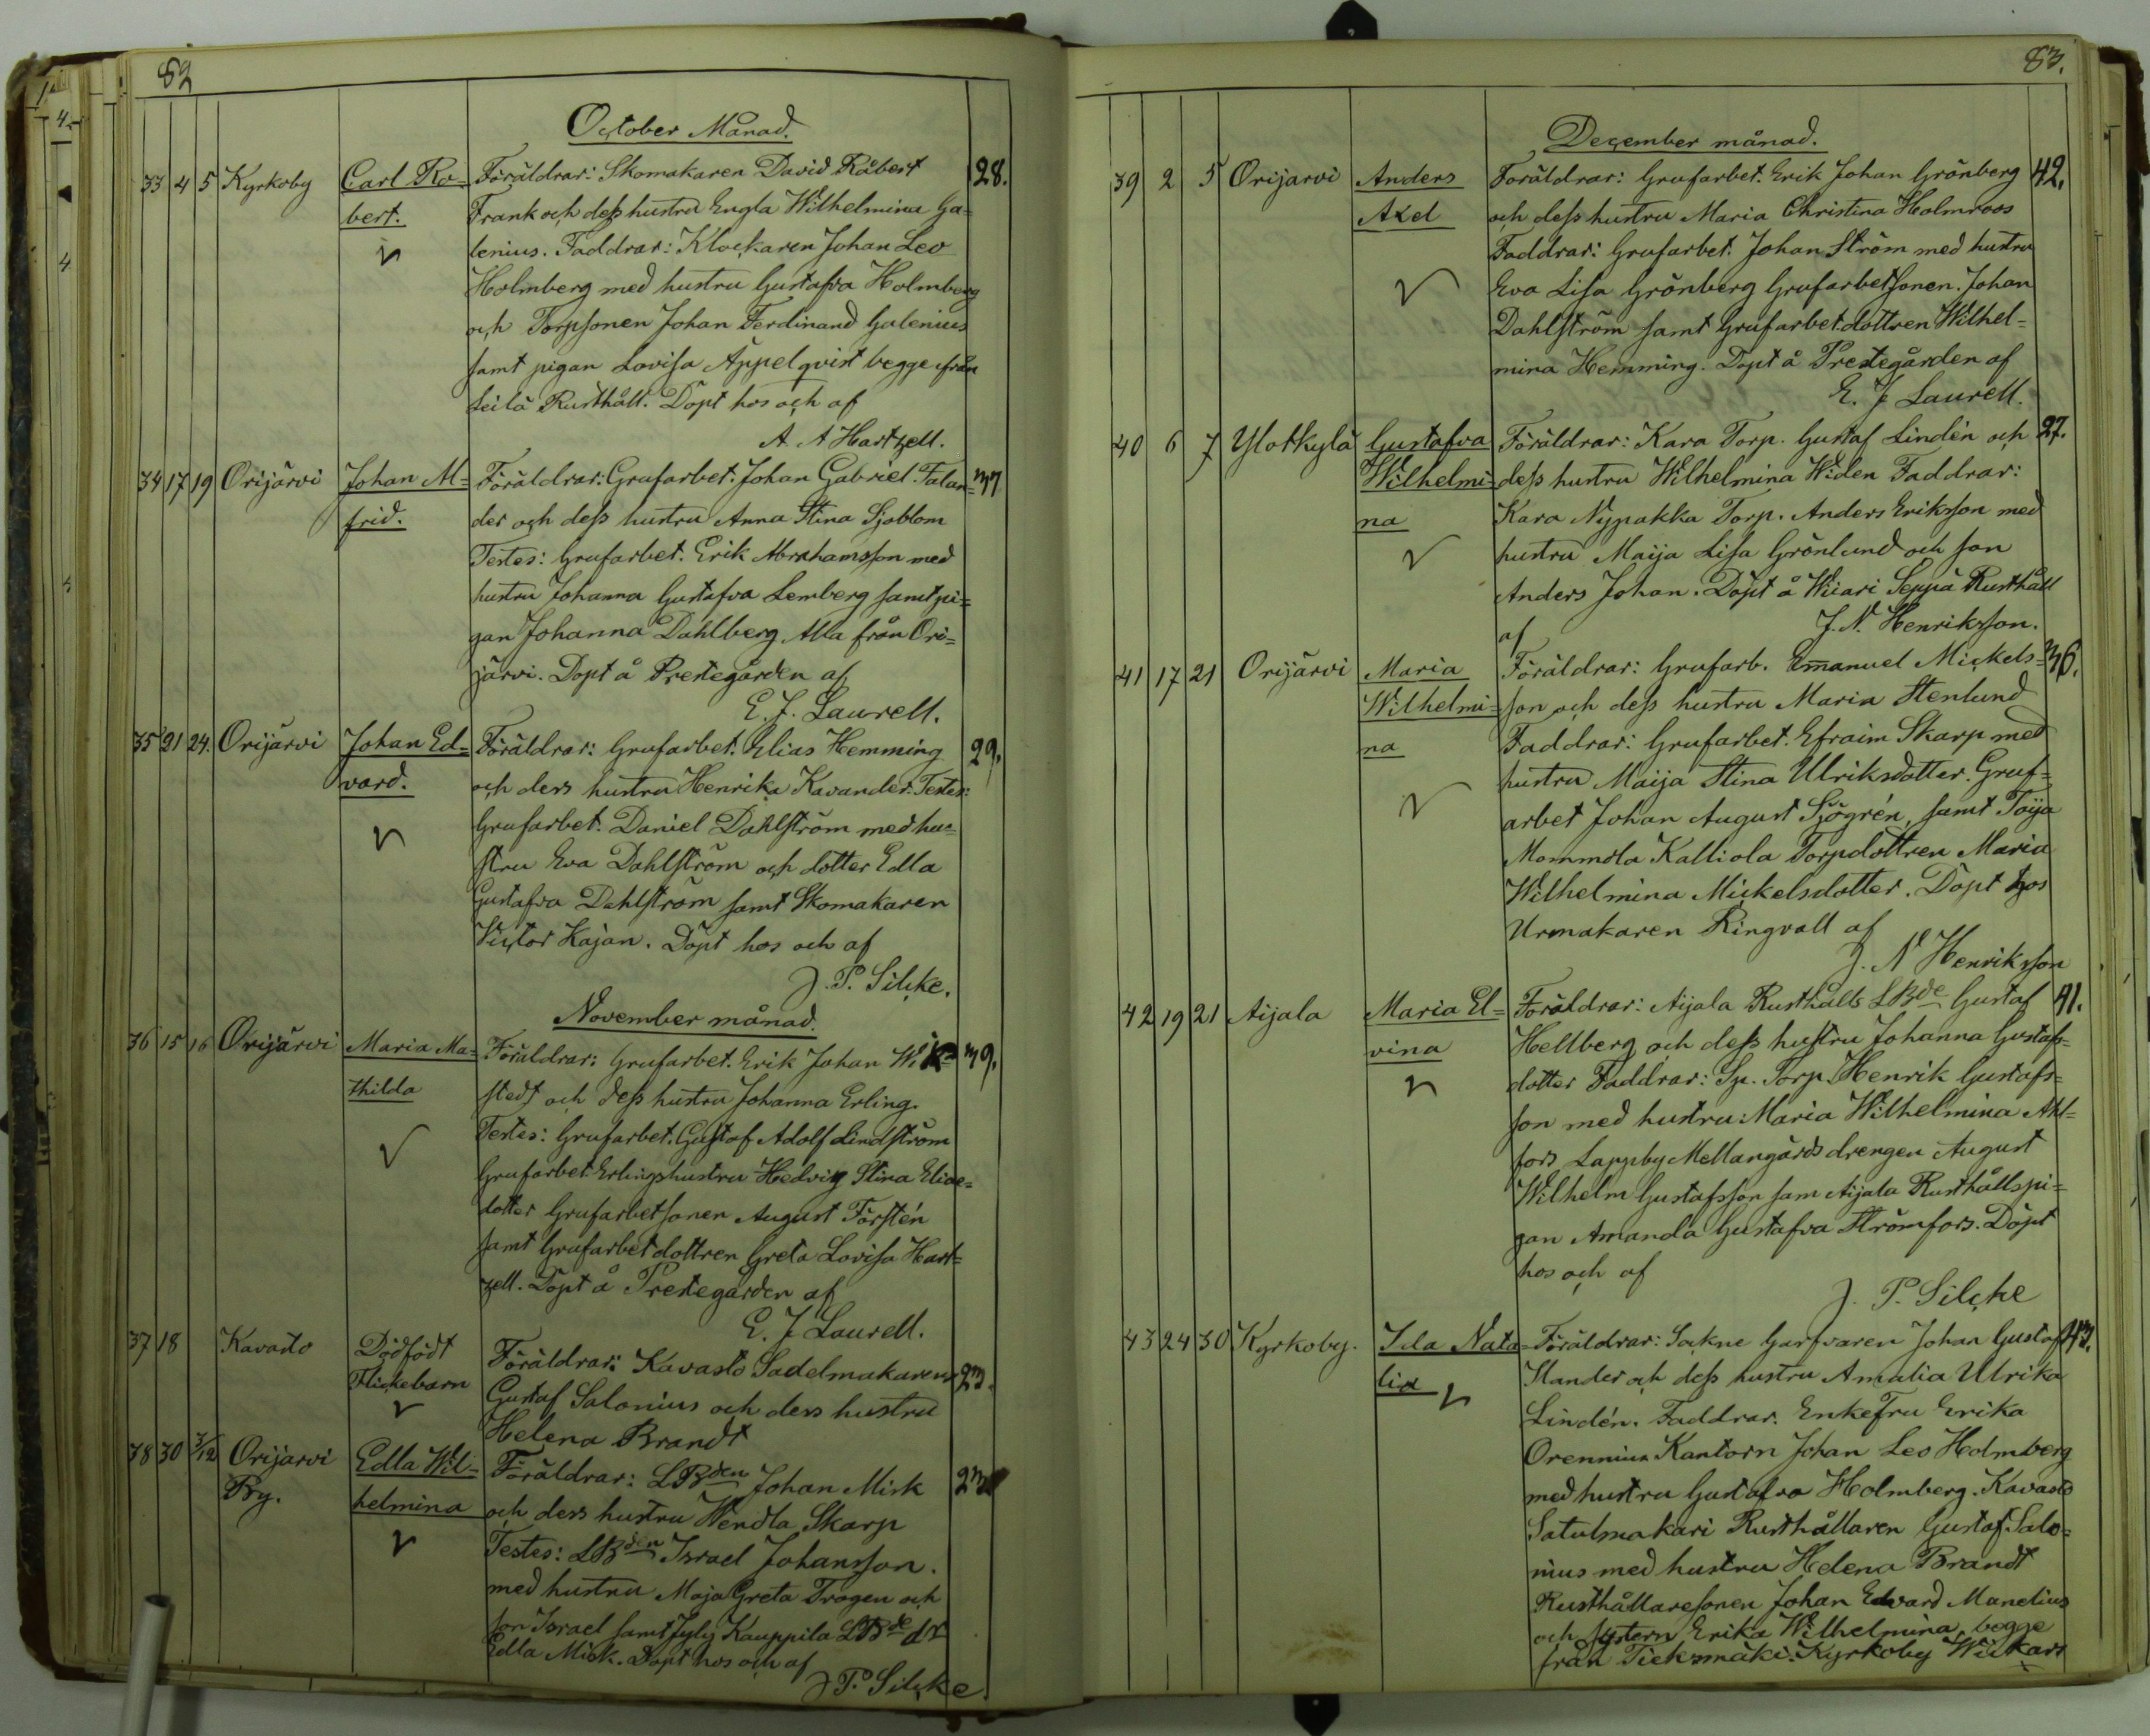 82
October Månad.
33 4 5 Kyrkoby Carl Ro- Föräldrar: Skomakaren David Råbert 28.
bert. Frank och dess hustru Engla Wilhelmina Ga-
lenius. Faddrar: Klockaren Johan Leo
Holmberg med hustru Gustafva Holmberg
och Torpsonen Johan Ferdinand Galenius
samt pigan Lovisa Appelqvist begge från
Leilä Rusthåll. Döpt hos och af
A. A Hartzell.
34 17 19 Orijärvi Johan Al- Föräldrar: Grufarbet. Johan Gabriel Falan- 37
frid. der och dess hustru Anna Stina Sjöblom
Testes: Grufarbet. Erik Abrahamsson med
hustru Johanna Gustafva Lemberg samt pi-
gan Johanna Dahlberg Alla från Ori-
järvi. Döpt å Prestegården af
E. J. Laurell.
35 21 24. Orijärvi Johan Ed- Föräldrar: Grufarbet. Elias Hemming 29.
vard. och dess hustru Henrika Kavander. Testes:
Grufarbet. Daniel Dahlström med hu-
stru Eva Dahlström och dotter Edla
Gustafva Dahlström samt Skomakaren
Victor Kajan. Döpt hos och af
J. P. Silcke.
November månad.
36 15 16 Orijärvi Maria Ma- Föräldrar: Grufarbet. Erik Johan Wik- 39.
thilda stedt och dess hustru Johanna Erling.
Testes: Grufarbet. Gustaf Adolf Lindström
Grufarbet. Erlings hustru Hedvig Stina Elias-
dotter Grufarbetsonen August Forstén
samt Grufarbetdottren Greta Lovisa Hart-
zell. Döpt å Prestegården af
E. J Laurell.
37 18 Kavasto Dödfödt Föräldrar: Kavasto Sadelmakarens 23.
Flickebarn Gustaf Salonius och dess hustru
Helena Brandt
38 30 3/12 Orijärvi Edla Wil- Föräldrar: LBden Johan Misk 23
By. helmina och dess hustru Wendla Skarp
Testes: LBden Israel Johansson.
med hustru Maja Greta Trogen och
son Israel samt Jyly Kauppila LBde dr
Edla Misk. Döpt hos och af
J P. Silcke.
83.
December månad.
39 2 5 Orijärvi Anders Föräldrar: Grufarbet. Erik Johan Grönberg 42.
Axel och dess hustru Maria Christina Holmroos
Faddrar: Grufarbet. Johan Ström med hustru
Eva Lisa Grönberg Grufarbetsonen. Johan
Dahlström samt Grufarbet.dottren Wilhel-
mina Hemming. Döpt å Prestegården af
E. J Laurell.
40 6 7 Ylotkylä Gustafva Föräldrar: Kara Torp. Gustaf Lindén och 27.
Wilhelmi- dess hustru Wilhelmina Widen Faddrar:
na Kara Nypakka Torp. Anders Eriksson med
hustru Maija Lisa Grönlund och son
Anders Johan. Döpt å Wiiari Seppä Rusthåll
af J. N. Henriksson.
41 17 21 Orijärvi Maria Föräldrar: Grufarb. Emanuel Mickels- 36.
Wilhelmi- son och dess hustru Maria Stenlund
na Faddrar: Grufarbet. Efraim Skarp med
hustru Maija Stina Ulriksdotter. Gruf-
arbet Johan August Sjögrén, samt Toija
Mommola Kalliola Torpdottren Maria
Wilhelmina Mickelsdotter. Döpt hos
Urmakaren Ringvall af
J. N Henriksson
42 19 21 Aijala Maria El- Föräldrar: Aijala Rusthålls LBde Gustaf 41.
vina Hellberg och dess hustru Johanna Gustafs-
dotter Faddrar: Sp. Torp. Henrik Gustafs-
son med hustru Maria Wilhelmina Ahl-
fors Lappby Mellangårds drengen August
Wilhelm Gustafsson sam Aijala Rusthållspi-
gan Amanda Gustafva Strömfors. Döpt
hos och af
J. P. Silcke
43 24 30 Kyrkoby. Ida Nata- Föräldrar: Sockne Garfvaren Johan Gustaf 43.
lia Slander och dess hustru Amalia Ulrika
Lindén. Faddrar. Enkefru Erika
Orennius Kantorn Johan Leo Holmberg
med hustru Gustafva Holmberg. Kavasto
Satulmakari Rusthållaren Gustaf Salo-
nius med hustru Helena Brandt
Rusthållaresonen Johan Edvard Manelius
och systern Erika Wilhelmina, begge
från Kyrkoby